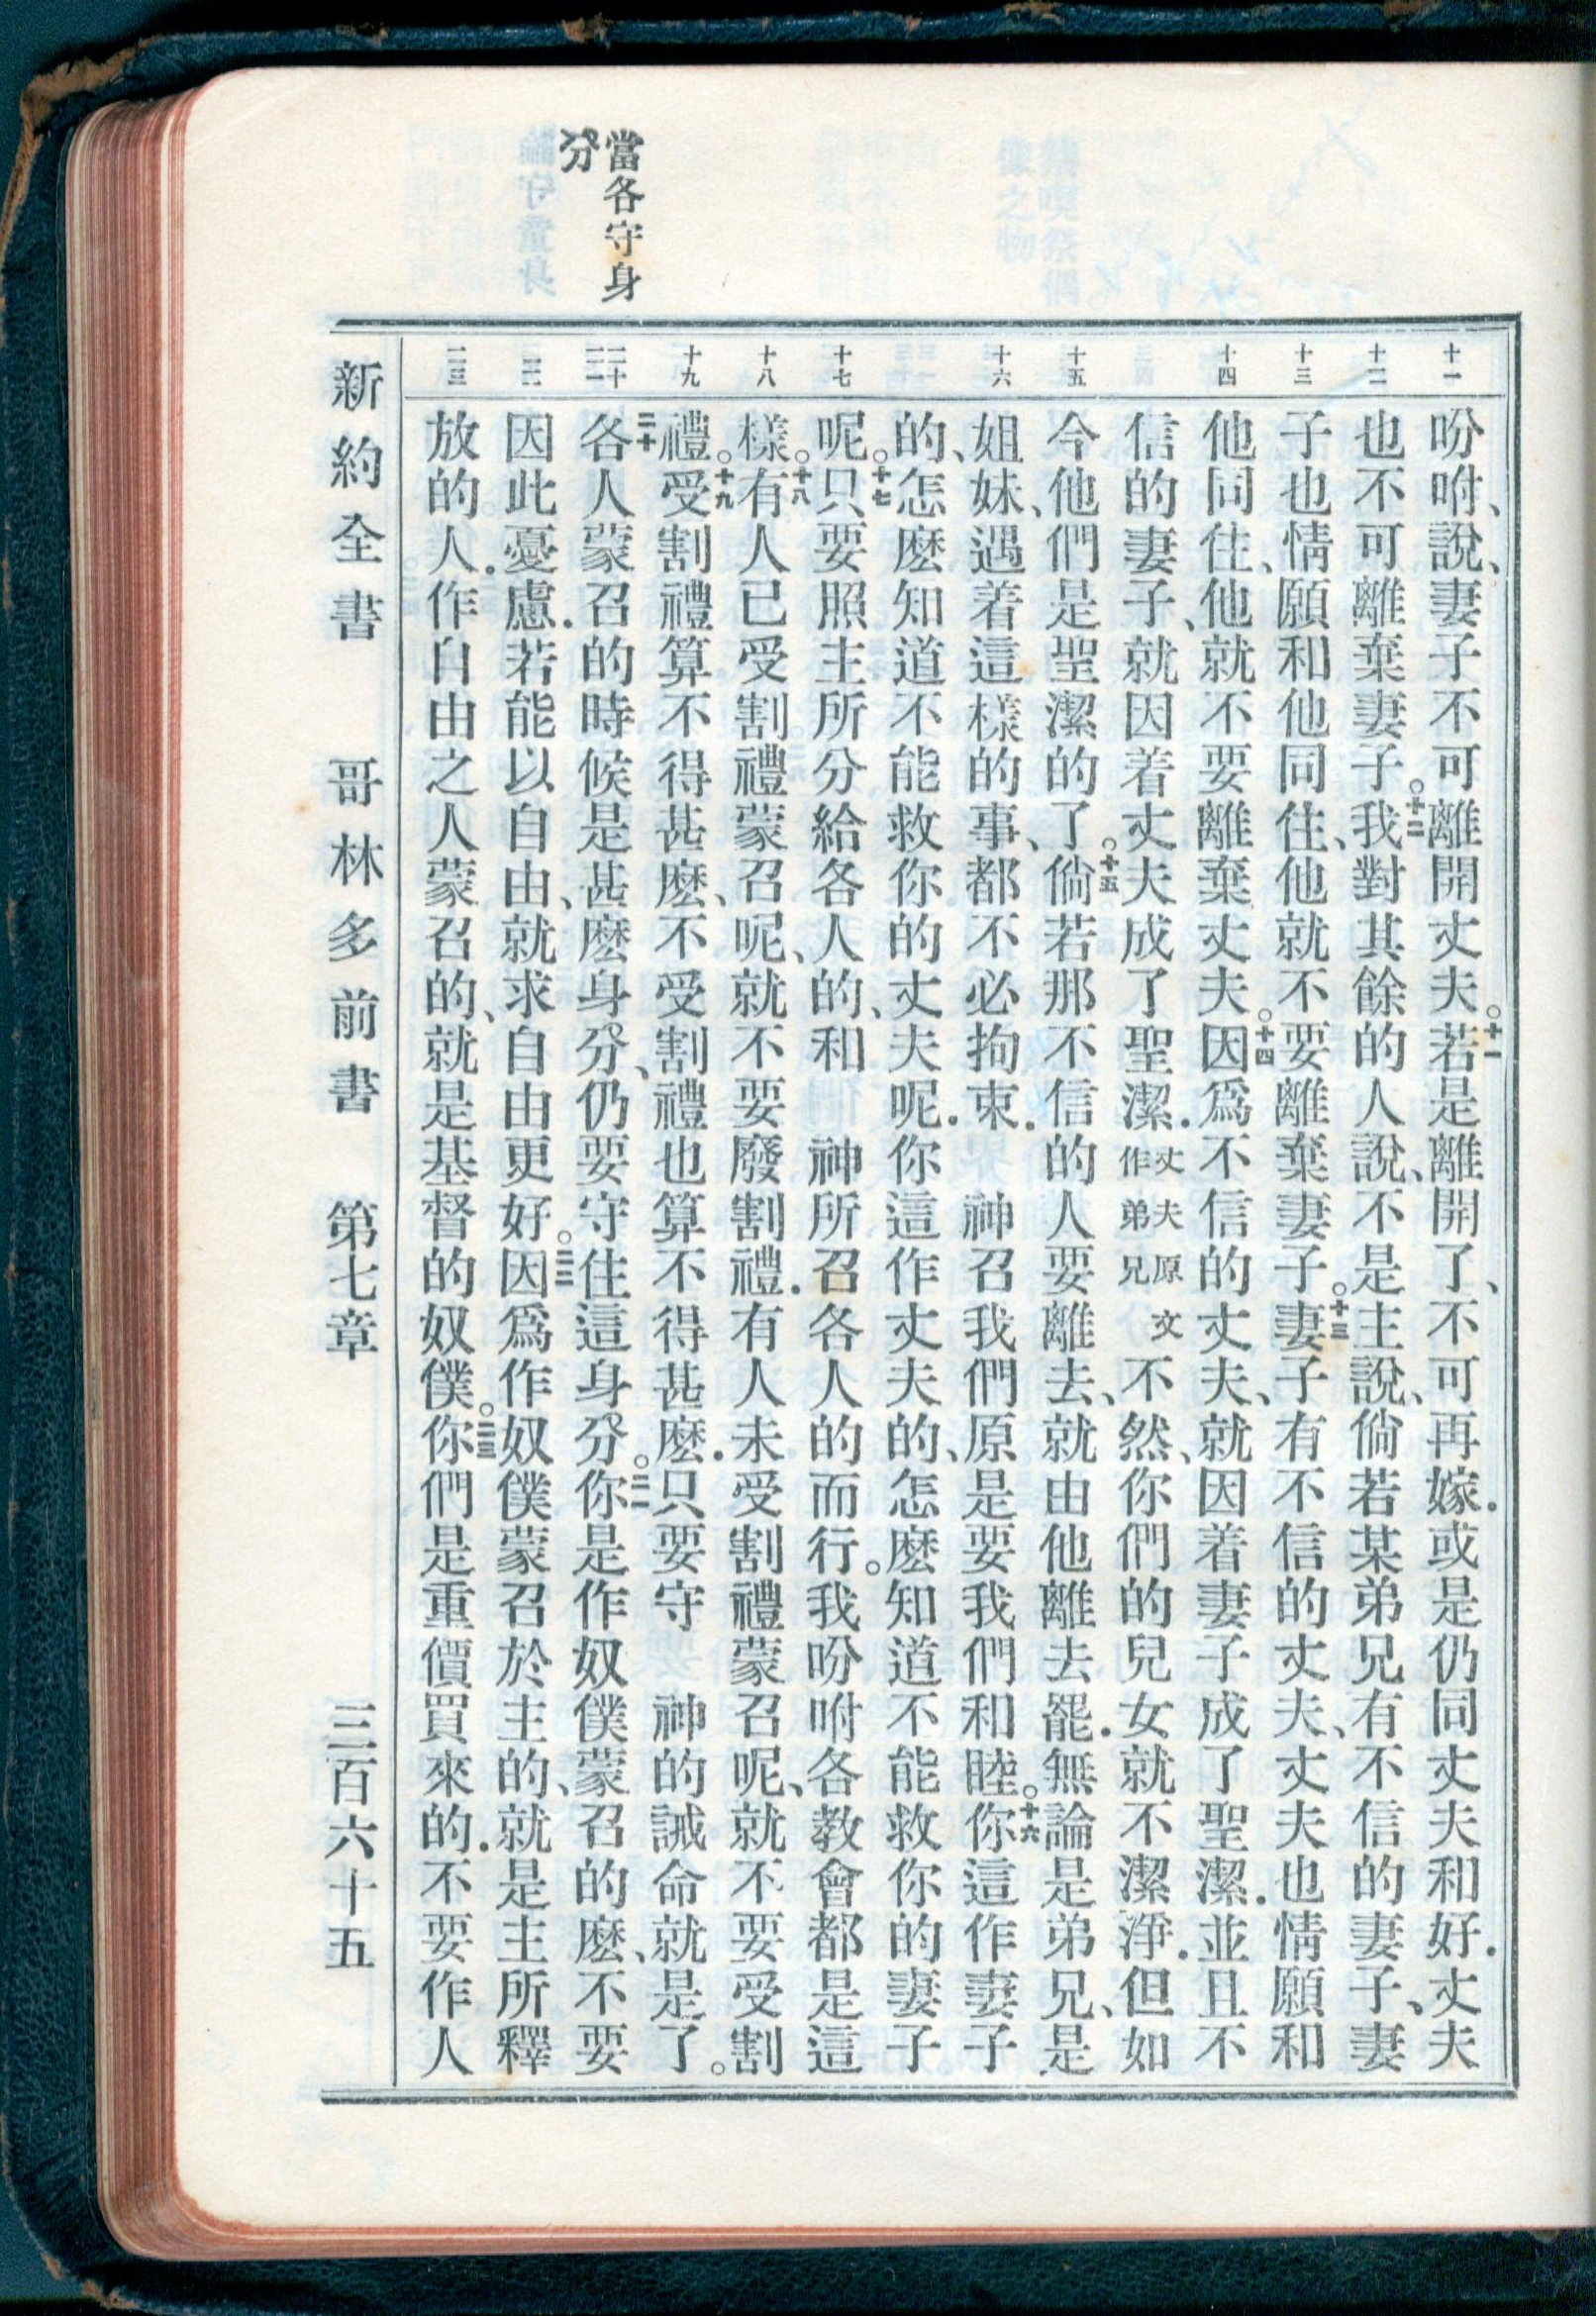 當各守身
分
十一
十二
十三
十四
十五
十六
十七
十八
十九
二十
二一
二二
二三
吩咐、說、妻子不可離開丈夫。十一若是離開了、不可再嫁．或是仍同丈夫和好．丈夫
也不可離棄妻子。十二我對其餘的人說、不是主說、倘若某弟兄有不信的妻子、妻
子也情願和他同住、他就不要離棄妻子。十三妻子有不信的丈夫、丈夫也情願和
他同住、他就不要離棄丈夫。十四因爲不信的丈夫、就因着妻子成了聖潔．並且不
信的妻子、就因着丈夫成了聖潔．丈夫原文作弟兄不然、你們的兒女就不潔淨．但如
今他們是聖潔的了。十五倘若那不信的人要離去、就由他離去罷．無論是弟兄、是
姐妹、遇着這樣的事、都不必拘束．　神召我們原是要我們和睦。十六你這作妻子
的、怎麽知道不能救你的丈夫呢．你這作丈夫的、怎麽知道不能救你的妻子
呢。十七只要照主所分給各人的、和　神所召各人的而行。我吩咐各教會都是這
樣。十八有人已受割禮蒙召呢、就不要廢割禮．有人未受割禮蒙召呢、就不要受割
禮。十九受割禮算不得甚麽、不受割禮也算不得甚麽．只要守　神的誡命就是了。
二十各人蒙召的時候是甚麽身分、仍要守住這身分。二一你是作奴僕蒙召的麽、不要
因此憂慮．若能以自由、就求自由更好。二二因爲作奴僕蒙召於主的、就是主所釋
放的人．作自由之人蒙召的、就是基督的奴僕。二三你們是重價買來的．不要作人
新約全書　哥林多前書　第七章　三百六十五